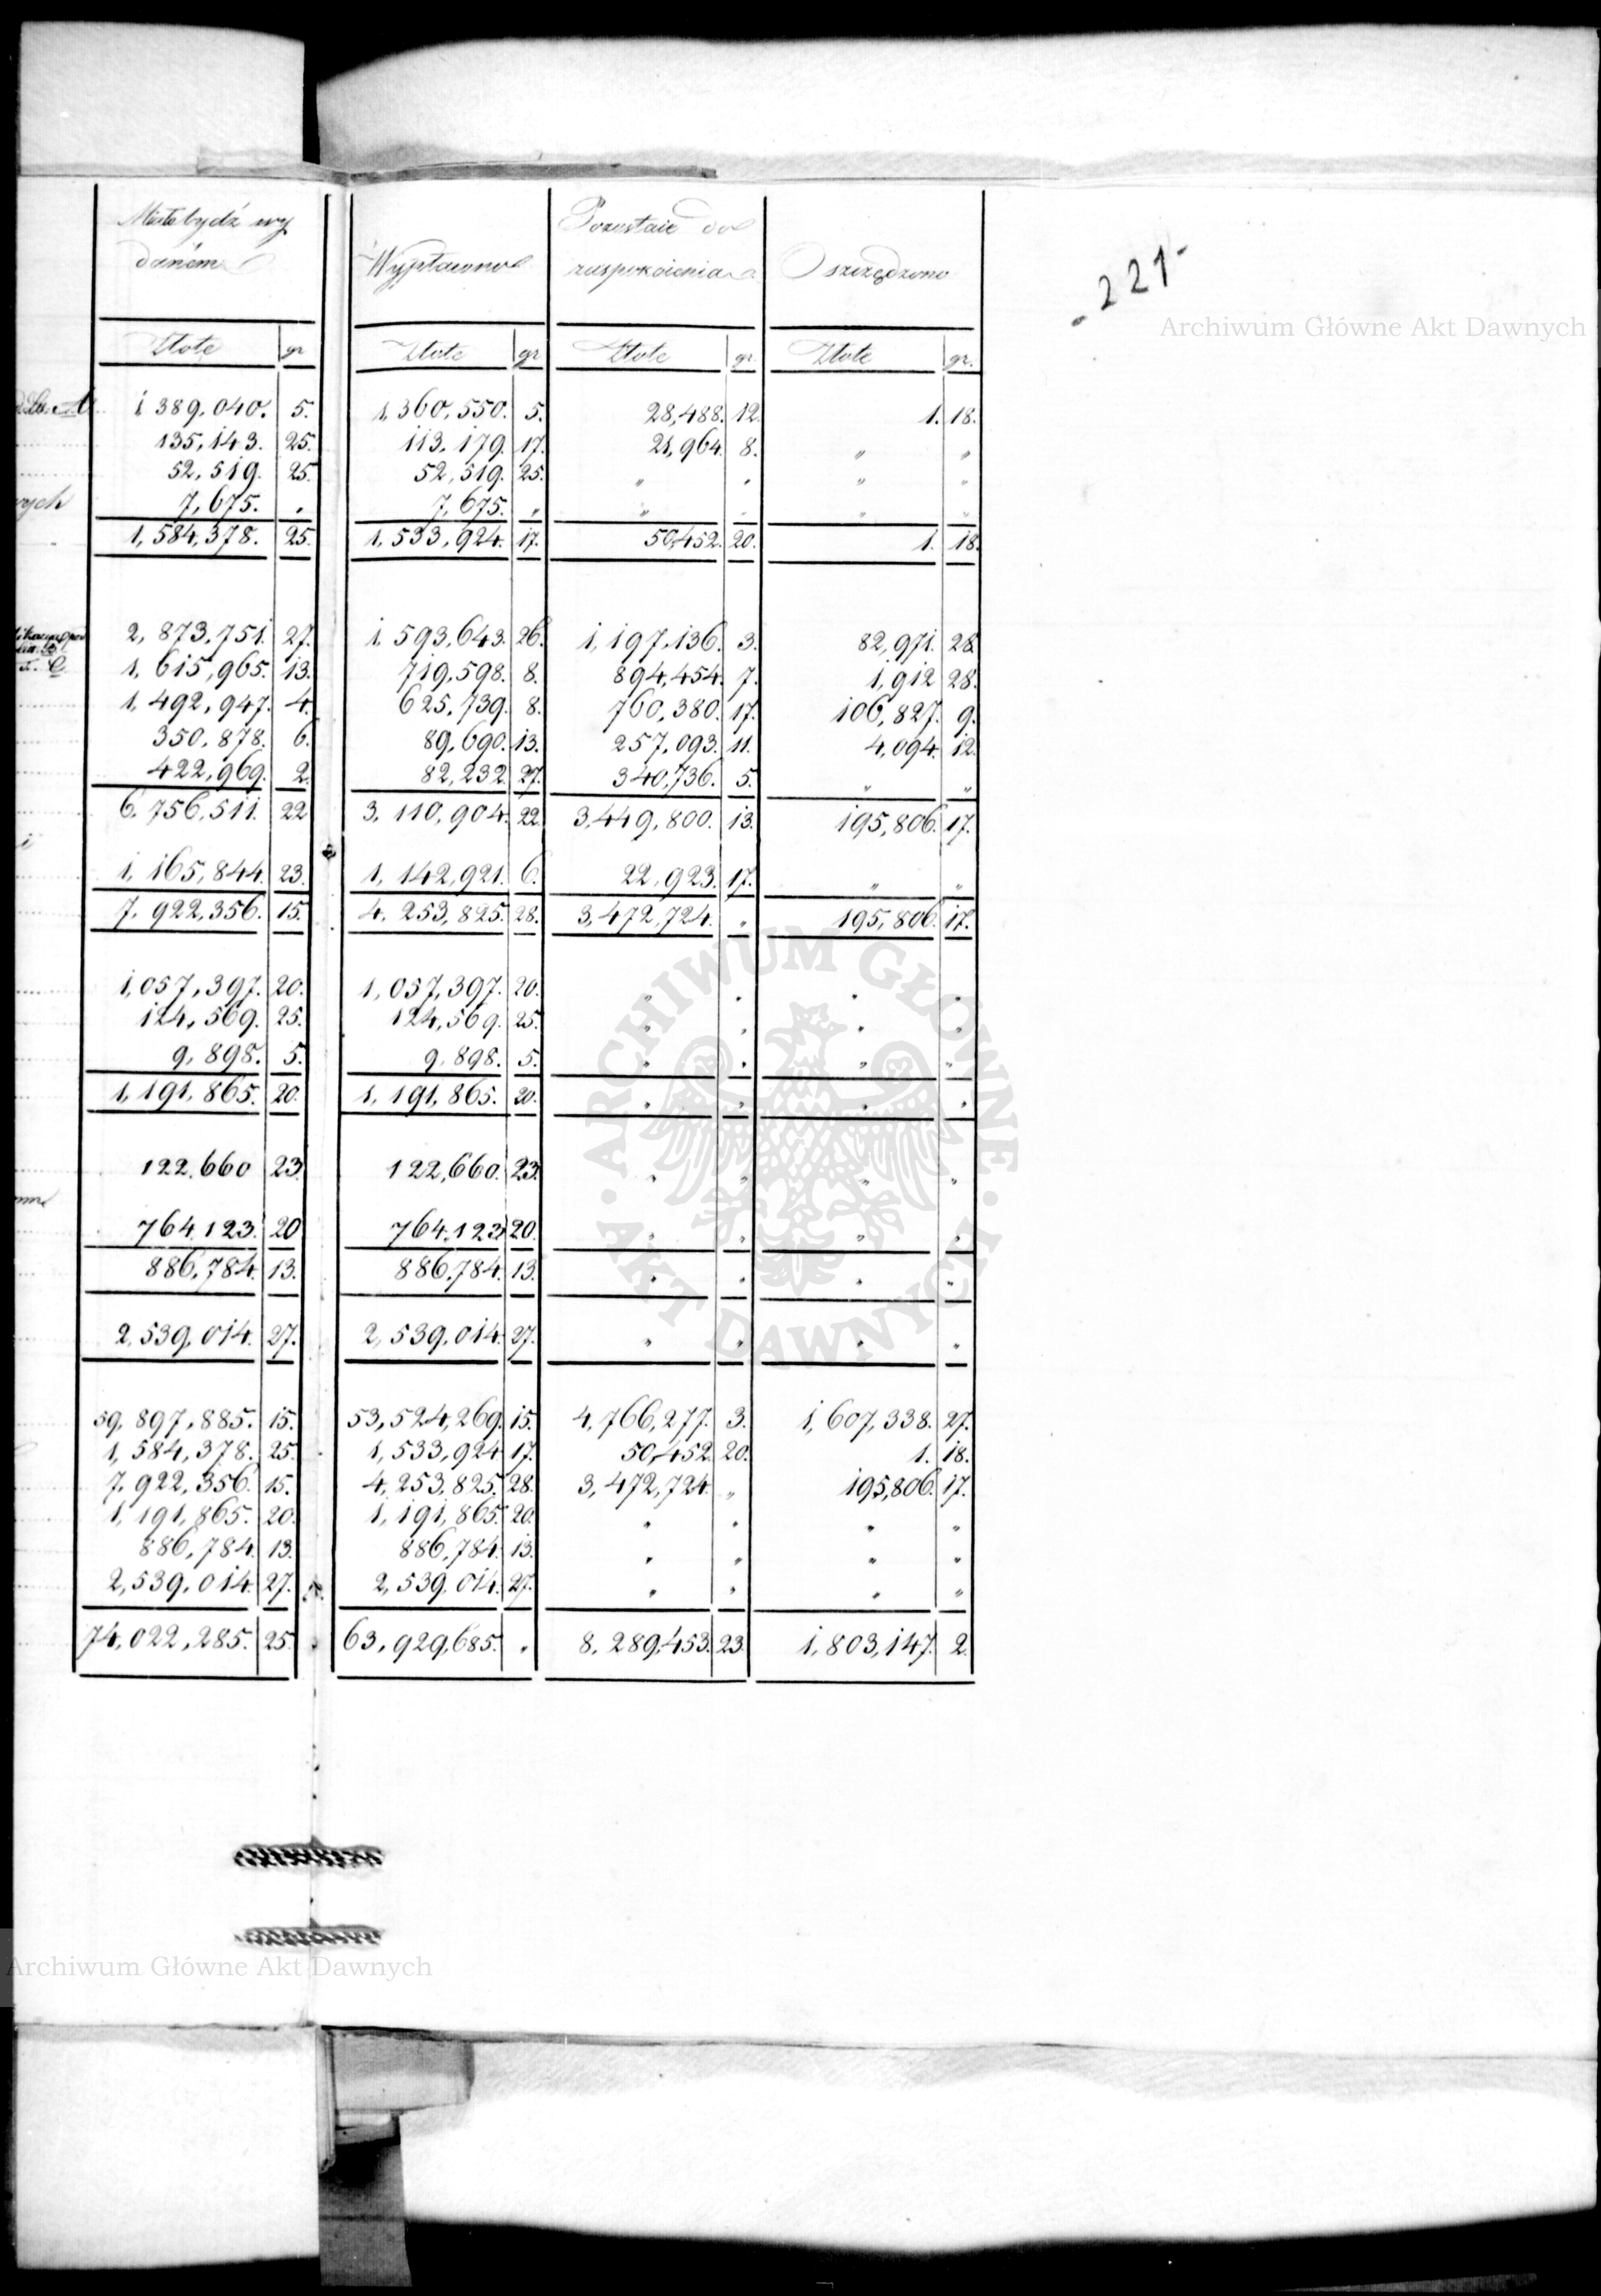 - 221 -
Archiwum Główne Akt Dawnych
Miało bydź wy Pozostaie do
daném Wypłacono zaspokoienia Oszczędzono
Złote gr Złote gr Złote gr. Złote gr.
1 389,040. 5. 1,360,550. 5. 28,488. 12. 1. 18.
135,143. 25. 113,179. 17. 21,964. 8. " "
52,519. 25. 52,519. 25. " " " "
wych 7,675. " 7,675. " " " " "
1,584,378. 25. 1,533,924. 17. 50,452. 20. 1. 18.
2,873,751. 27. 1,593,643. 26. 1,197,136. 3. 82,971. 28.
1,615,965. 13. 719,598. 8. 894,454. 7. 1,912 28.
1,492,947. 4. 625,739. 8. 760,380. 17. 106,827. 9.
350,878. 6. 89,690. 13. 257,093. 11. 4,094. 12.
422,969. 2. 82,232. 27. 340,736. 5. " "
6,756,511. 22 3,110,904. 22. 3,449,800. 13. 195,806. 17.
i
1,165,844. 23. 1,142,921. 6. 22,923. 17. " "
7,922,356. 15. 4,253,825. 28. 3,472,724. " 195,806. 17.
1,057,397. 20. 1,057,397. 20. " " " "
124,569. 25. 124,569. 25. " " " "
9,898. 5. 9,898. 5. " " " "
1,191,865. 20. 1,191,865. 20. " " " "
122,660 23. 122,660. 23. " " " "
764,123. 20 764,123 20. " " " "
886,784. 13. 886,784. 13. " " " "
2,539,014. 27. 2,539,014. 27. " " " "
59,897,885. 15. 53,524,269. 15. 4,766,277. 3. 1,607,338. 27.
1,584,378. 25. 1,533,924 17. 50,452. 20. 1. 18.
7,922,356. 15. 4,253,825. 28. 3,472,724. " 195,806. 17.
1,191,865. 20. 1,191,865. 20. " " " "
886,784. 13. 886,784. 13. " " " "
2,539,014. 27. 2,539,014. 27. " " " "
74,022,285. 25. 63,929,685. " 8,289,453. 23 1,803,147. 2.
ARCHIWUM GŁÓWNE AKT DAWNYCH
Archiwum Główne Akt Dawnych